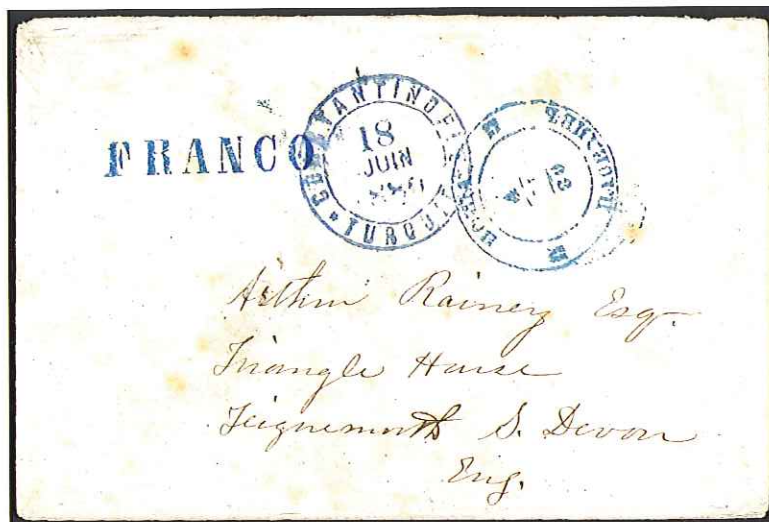 FRANCO
CONSTANTINOPLE
18
JUIN
TURQUIE
Arthur Rainey Esq.
Triangle House
Teignemouth S. Devon
Eng.